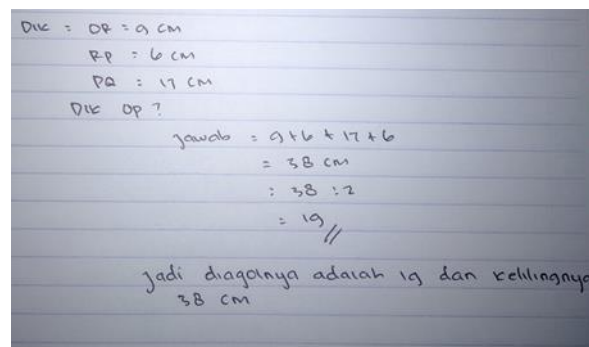 Dik : OR = 9 cm
RP = 6 cm
PQ : 17 cm
Dik OP ?
Jawab = 9 + 6 + 17 + 6
= 38 cm
: 38 : 2
= 19 //
Jadi diagolnya adalah 19 dan kelilingnya
38 cm